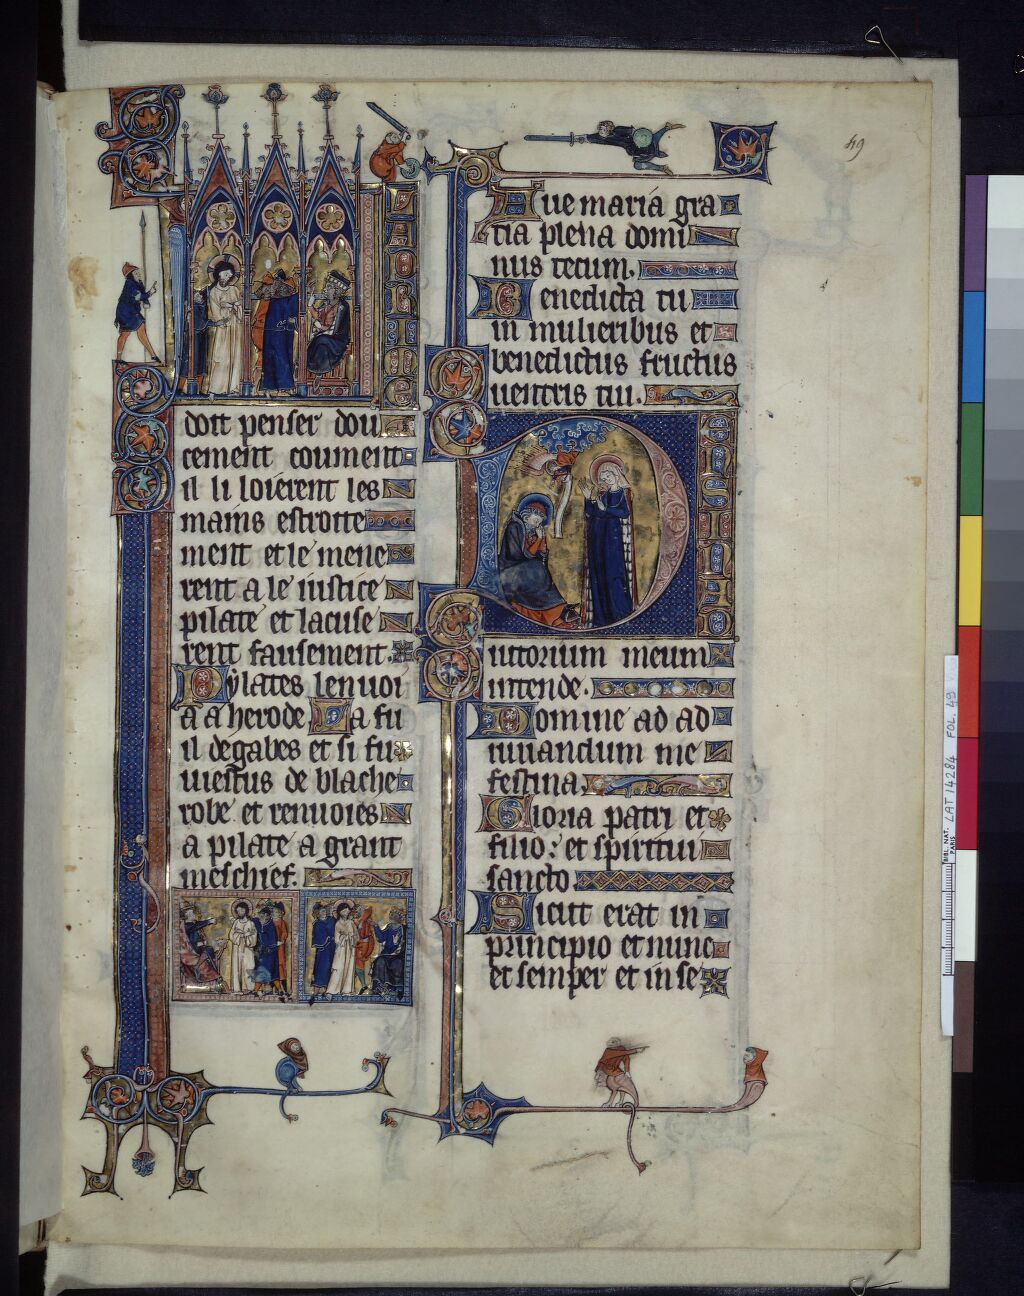 doit penser dou
cement coument
il li loierent les
mains estroite
ment et le mene
rent a le iustice
pilate et lacuse
rent fausement.
Pylates lenuoi
a a herode. La fu
il degabes et si fu
uiestus de blache
robe et renuoies
a pilate a grant
meschief.
49
Aue maria gra
tia plena domi
nus tecum.
Benedicta tu
in mulieribus et
benedictus fructus
uentris tui.
DEUS IN AD
iutorium meum
intende.
Domine ad ad
iuuandum me
festina.
Gloria patri et
filio: et spiritui
sancto.
Sicut erat in
principio et nunc
et semper et in se
BIBL. NAT. PARIS
LAT 14284 FOL. 49